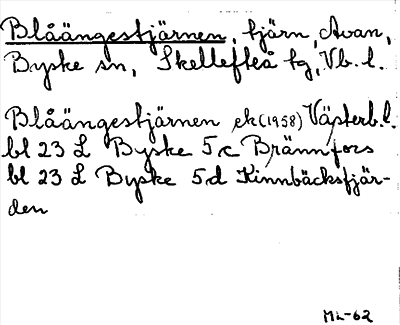 Blåängestjärnen, tjärn, Avan,
Byske sn, Skellefteå tg, Vb. l.
Blåängestjärnen ek (1958) Västerb. l.
bl 23 L Byske 5c Brännfors
bl 23 L Byske 5d Kinnbäcksfjär-
den
ML-62